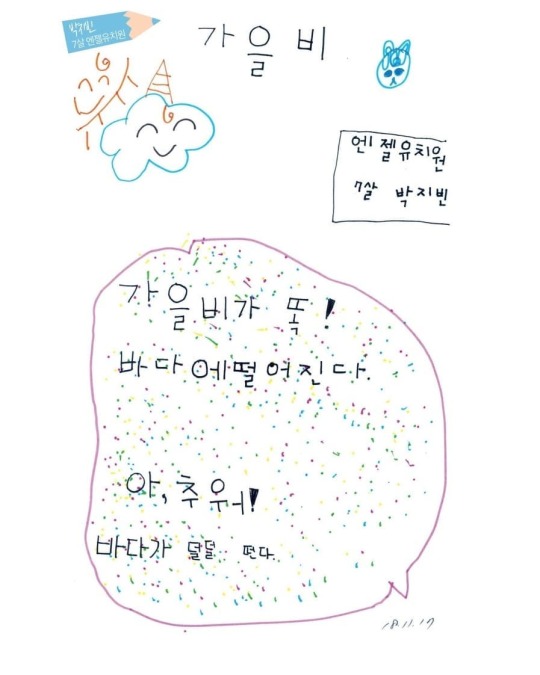 박지빈
7살 엔젤유치원
가을 비
엔젤유치원
7살 박지빈
가을비가 똑!
바다에떨어진다.
아, 추워!
바다가 덜덜.. 떤다.
18.11.17